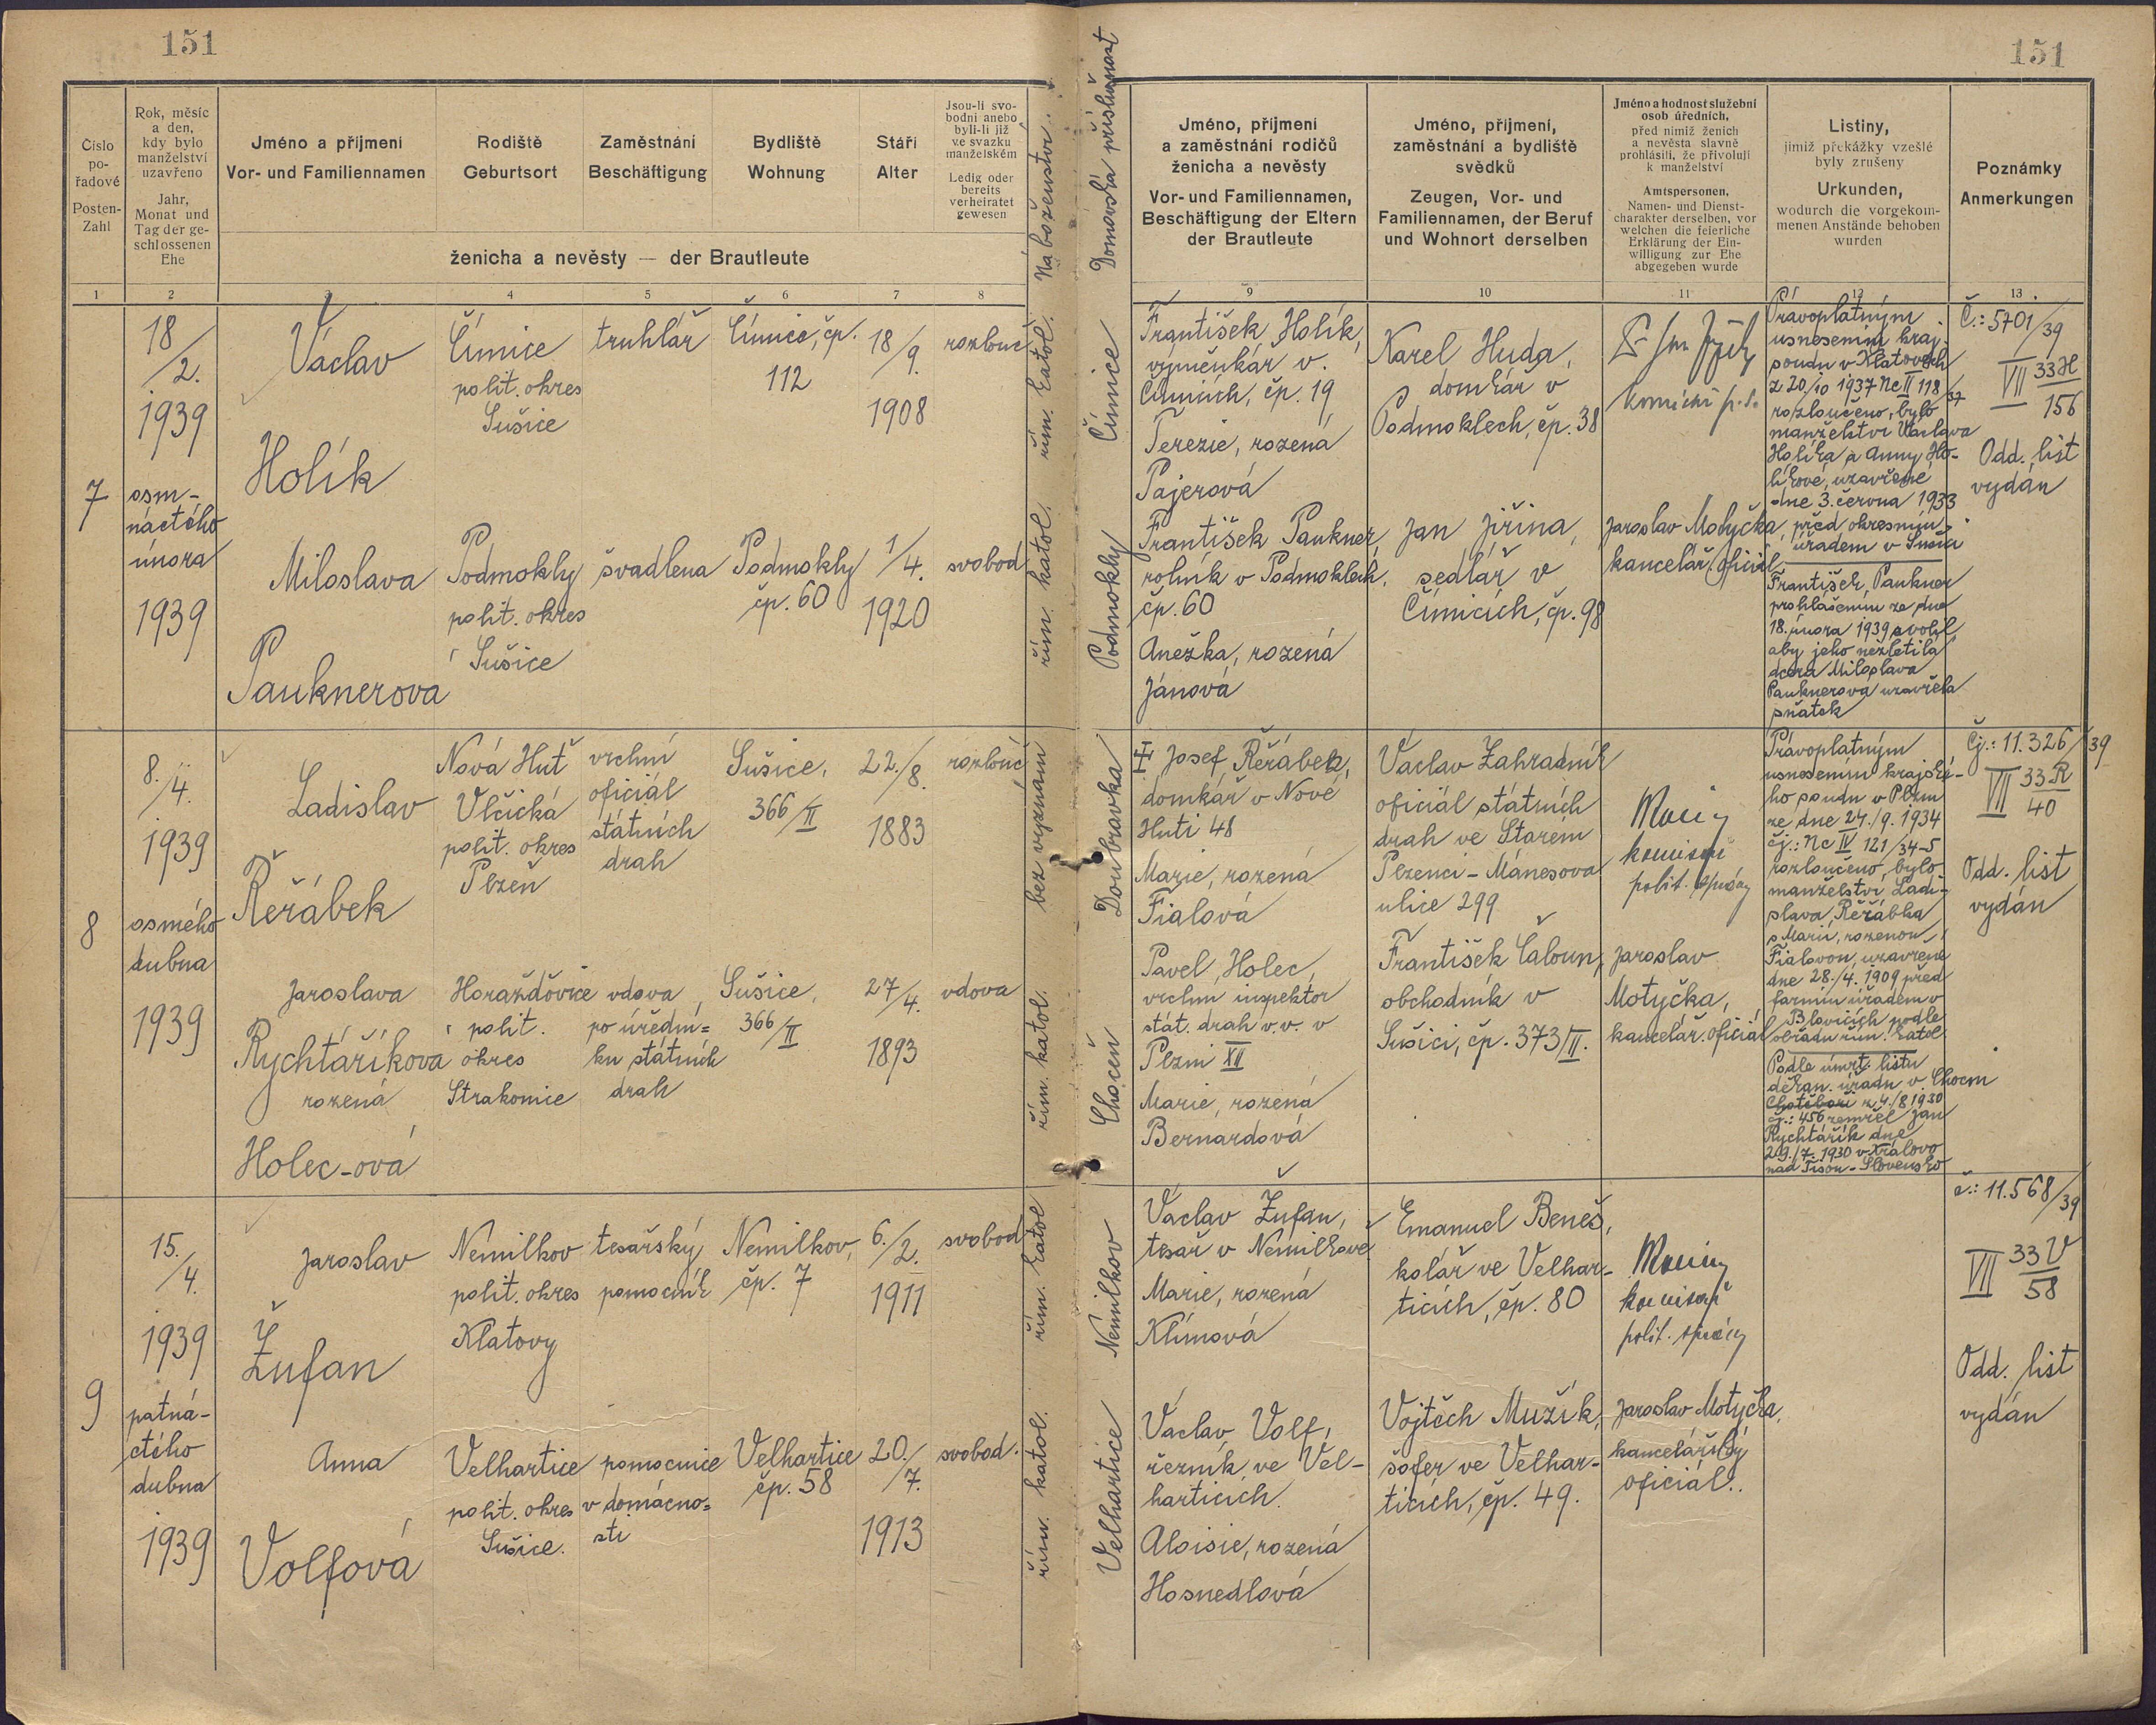 151
151
Číslo po-
řadové
Posten-
Zahl
Rok, měsíc
a den,
kdy bylo
manželství
uzavřeno
Jahr,
Monat und
Tag der ge-
schlossenen
Ehe
Jméno a příjmení
Vor- und Familiennamen
Rodiště
Geburtsort
Zaměstnání
Beschäftigung
Bydliště
Wohnung
Stáří
Alter
Jsou-li svo-
bodni anebo
byli-li již
ve svazku
manželském
Ledig oder
bereits
verheiratet
gewesen
ženicha a nevěsty — der Brautleute
Náboženství.
Domovská příslušnost
Jméno, příjmení
a zaměstnání rodičů
ženicha a nevěsty
Vor- und Familiennamen,
Beschäftigung der Eltern
der Brautleute
Jméno, příjmení,
zaměstnání a bydliště
svědků
Zeugen, Vor- und
Familiennamen, der Beruf
und Wohnort derselben
Jméno a hodnost služební
osob úředních,
před nimiž ženich
a nevěsta slavně
prohlásili, že přivolují
k manželství
Amtspersonen,
Namen- und Dienst-
charakter derselben, vor
welchen die feierliche
Erklärung der Ein-
willigung zur Ehe
abgegeben wurde
Listiny,
jimiž překážky vzešlé
byly zrušeny
Urkunden,
wodurch die vorgekom-
menen Anstände behoben
wurden
Poznámky
Anmerkungen
1 2 3 4 5 6 7 8 9 10 11 12 13
7
18
/2.
1939
osm-
náctého
února
1939
Václav
Holík
Čímice
polit. okres
Sušice
truhlář
Čímice, čp.
112
18/9.
1908
rozlouč
řím. katol.
Čímice
František Holík,
výměnkář v
Čímicích, čp. 19
Terezie, rozená
Pajerová
Karel Huda,
domkář v
Podmoklech, čp. 38
Právoplatným
usnesením kraj.
soudu v Klatovech
z 20/10 1937 Nc II 118/37
rozloučeno, bylo
manželství Václava
Holíka a Anny Ho-
líkové, uzavřené
dne 3. června 1933
před okresním
úřadem v Sušici
Č.: 5701/39
VII 33H
156
Odd. list
vydán
Miloslava
Pauknerova
Podmokly
polit. okres
Sušice
švadlena
Podmokly
čp. 60
1/4.
1920
svobod
řím. katol.
Podmokly
František Paukner,
rolník v Podmoklech,
čp. 60
Anežka, rozená
Jánová
Jan Jiřina,
sedlář v
Čímicích, čp. 98
Jaroslav Motyčka,
kancelář. oficiál
František Paukner
prohlášením ze dne
18. února 1939 svolil,
aby jeho nezletilá
dcera Miloslava
Pauknerová uzavřela
sňatek
8
8.
/4.
1939
osmého
dubna
1939
Ladislav
Řeřábek
Nová Huť
Vlčická
polit. okres
Plzeň
vrchní
oficiál
státních
drah
Sušice,
366/II
22./8.
1883
rozlouč
bez vyznání
Doubravka
Josef Řeřábek,
domkář v Nové
Huti 48
Marie, rozená
Fialová
Václav Zahradník
oficiál státních
drah ve Starém
Plzenci - Mánesova
ulice 299
komisař
polit. správy
Právoplatným
usnesením krajské-
ho soudu v Plzni
ze dne 24./9. 1934
čj.: Nc IV 121/34-5
rozloučeno, bylo
manželství Ladi-
slava Řeřábka
s Marií, rozenou
Fialovou, uzavřené
dne 28./4. 1909 před
farním úřadem v
Blovicích podle
obřadu řím. katol.
Čj.: 11.326/39
VII 33R
40
Odd. list
vydán
Jaroslava
Rychtáříkova
rozená
Holec-ová
Horažďovice
polit.
okres
Strakonice
vdova
po úřední=
ku státních
drah
Sušice,
366/II
27/4.
1893
vdova
řím. katol.
Choceň
Pavel Holec,
vrchní inspektor
stát. drah v. v. v
Plzni XII
Marie, rozená
Bernardová
František Čaloun,
obchodník v
Sušici, čp. 373/II.
Jaroslav
Motyčka,
kancelář. oficiál
Podle úmrt. listu
děkan. úřadu v Chocni
z 4./8 1930
čj.: 456 zemřel Jan
Rychtářík dne
29./7. 1930 v Královo
nad Tisou - Slovensko
9
15.
/4.
1939
patná-
ctého
dubna
1939
Jaroslav
Žufan
Nemilkov
polit. okres
Klatovy
tesařský
pomocník
Nemilkov,
čp. 7
6./2.
1911
svobod
řím. katol
Nemilkov
Václav Žufan,
tesař v Nemilkově
Marie, rozená
Klímová
Emanuel Beneš,
kolář ve Velhar-
ticích, čp. 80
komisař
polit. správy
č.: 11.568/39
VII 33V
58
Odd. list
vydán
Anna
Volfová
Velhartice
polit. okres
Sušice.
pomocnice
v domácno=
sti
Velhartice
čp. 58
20./7.
1913
svobod.
řím. katol.
Velhartice
Václav Volf,
řezník ve Vel-
harticích.
Aloisie, rozená
Hosnedlová
Vojtěch Mužík,
šofer ve Velhar-
ticích, čp. 49.
Jaroslav Motyčka,
kancelářský
oficiál.